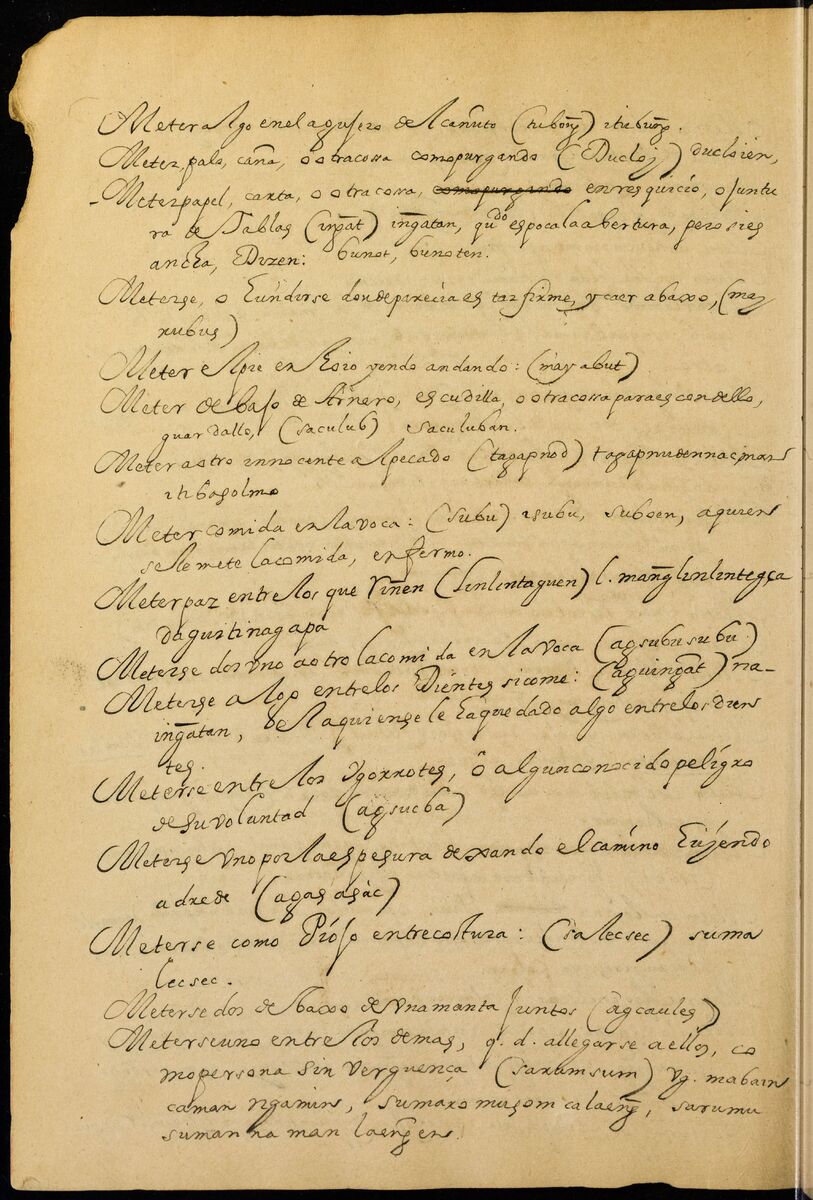 Meter algo en el agujero del cañuto (tubong̃) itubung̃.
Meter palo, caña, o otra cossa como purgando (Ducloj) ducloien,
Meter papel, carta, o otra cossa, como purgando en resquicio, o juntu
ra de Tablas (ing̃at) ing̃atan, qu.do es poca la abertura, pero si es
ancha, Dizen: bunot, bunoten.
Meterse, o hundirse donde parecia estar firme, y caer abaxo, (may
rubus)
Meter el pie en hoio yendo andando: (mayabut)
Meter debajo de Arnero, escudilla, o otra cossa para escondello,
guardallo, (saculub) saculuban.
Meter a otro innocente al pecado (tagapnod) tagapnuden
Meter comida en la voca: (subu) isubu, suboen, a quien
se le mete la comida, enfermo.
Meter paz entre los que riñen (linlintaguen) l.
Meterse dos uno a otro la comida en la voca (agsubusubu)
Meterse algo entre los Dientes si come: (aguing̃at) na-
ing̃atan, de la quien se le ha quedado algo entre los dien
tes.
Meterse entre los ygorrotes, ô algun conocido peligro
de su voluntad (agsucba)
Meterse uno por la espesura dexando el camino huyendo
adrede (agasasàc)
Meterse como Piojo entre costura: (salecsec) suma
lecsec.
Meterse dos debaxo de una manta juntos (agcaules)
Meterse uno entre los demas, q. d. allegarse a ellos, co
mo persona sin verguença (sarumsum) vg.
suman na man